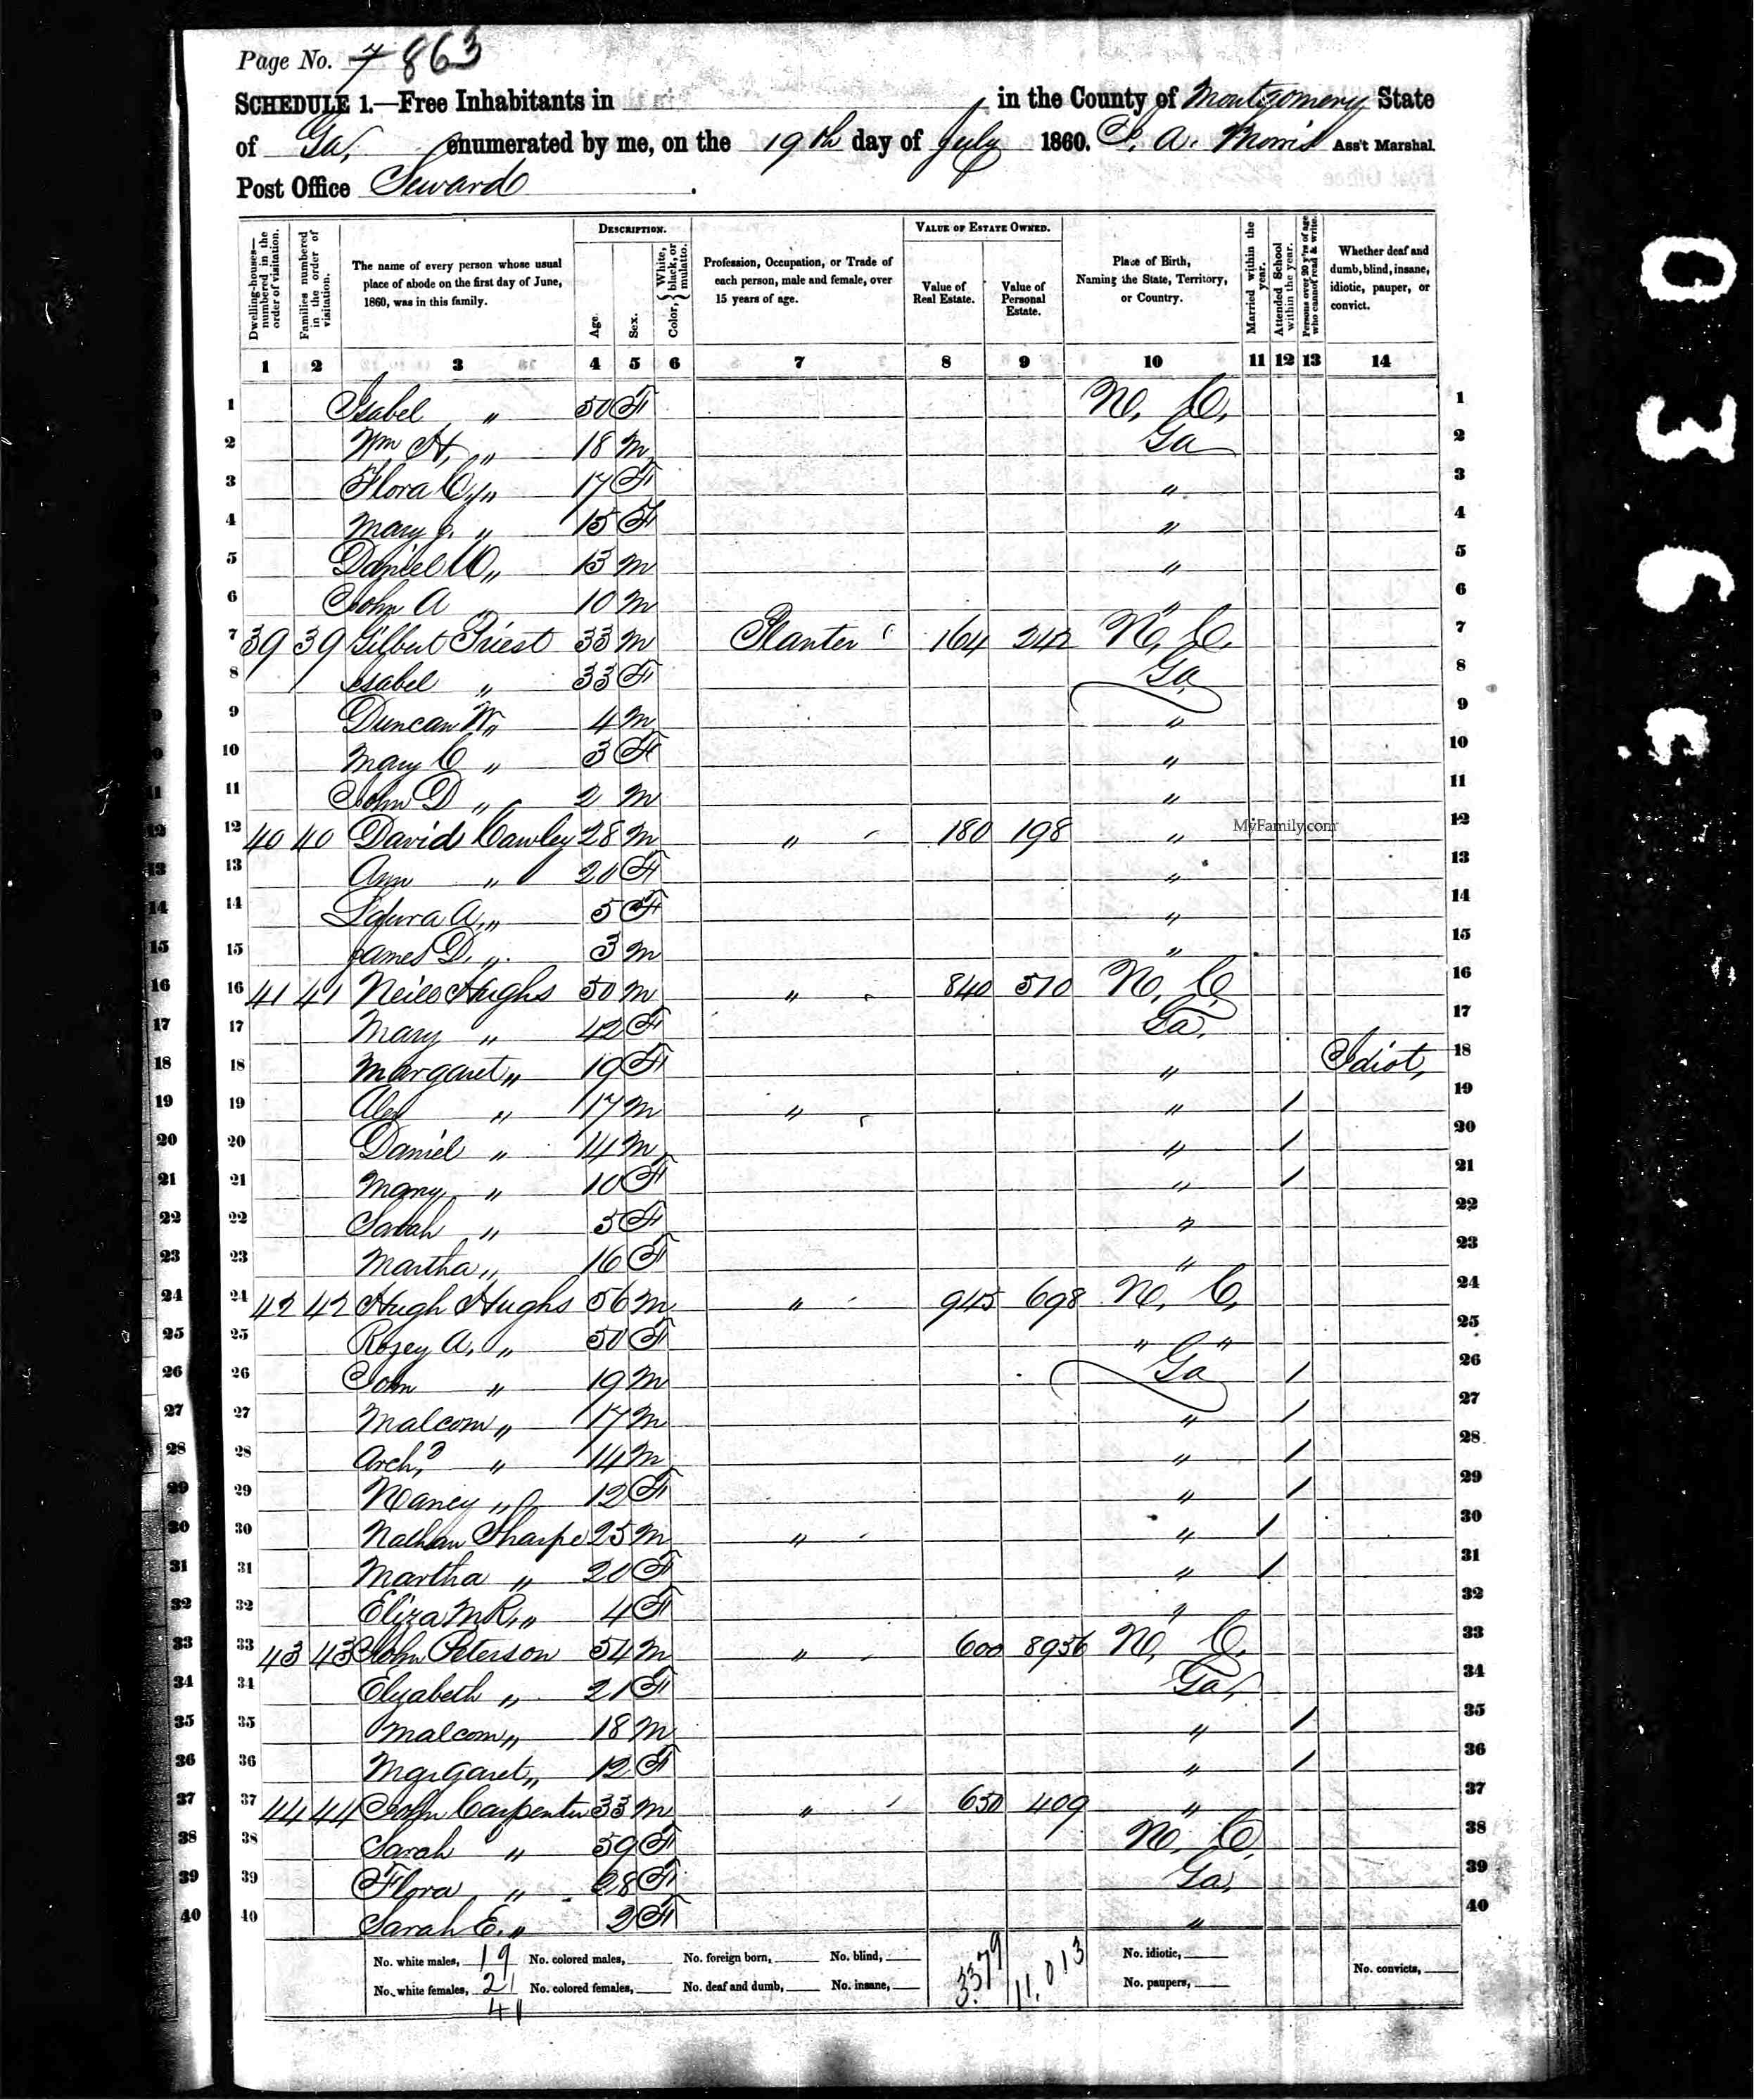 Page No. 7 863
SCHEDULE 1.—Free Inhabitants in in the County of Montgomery State
of Ga, enumerated by me, on the 19th day of July 1860. A. Morris Ass't Marshal.
Post Office Seward
DESCRIPTION. VALUE OF ESTATE OWNED.
Dwelling-houses—numbered in the order of visitation. Families numbered in the order of visitation. The name of every person whose usual place of abode on the first day of June, 1860, was in this family. Age. Sex. Color, { White, black, or mulatto. Profession, Occupation, or Trade of each person, male and female, over 15 years of age. Value of Real Estate. Value of Personal Estate. Place of Birth, Naming the State, Territory, or Country. Married within the year. Attended School within the year. Persons over 20 y'rs of age who cannot read & write. Whether deaf and dumb, blind, insane, idiotic, pauper, or convict.
1 2 3 4 5 6 7 8 9 10 11 12 13 14
1 Isabel " 50 F No. C. 1
2 Wm H, " 18 M Ga 2
3 Flora C, " 17 F " 3
4 Mary J. " 15 F " 4
5 Daniel " 13 M " 5
6 John A " 10 M " 6
7 39 39 Gilbert Priest 33 M Planter 164 242 No. C. 7
8 Isabel " 33 F Ga 8
9 Duncan W, " 4 M " 9
10 Mary C " 3 F " 10
11 John D " 2 M " 11
12 40 40 David Cawley 28 M " 180 198 " 12
MyFamily.com
13 Ann " 20 F " 13
14 Laura A, " 5 F " 14
15 James D. " 3 M " 15
16 41 41 Neill Hughs 50 M " 840 510 No. C. 16
17 Mary " 42 F Ga. 17
18 Margaret " 19 F " Idiot, 18
19 Alex " 17 M " " / 19
20 Daniel " 14 M " / 20
21 Mary " 10 F " / 21
22 Sarah " 5 F " 22
23 Martha " 16 F " 23
24 42 42 Hugh Hughs 56 M " 945 698 No. C. 24
25 Rosey A. " 50 F " " 25
26 John " 19 M Ga / 26
27 Malcom " 17 M " / 27
28 Arch.d " 14 M " / 28
29 Nancy " 12 F " / 29
30 Nathan Sharpe 25 M " " / 30
31 Martha " 20 F " / 31
32 Eliza M R, " 4 F " 32
33 43 43 John Peterson 54 M " 600 8956 No. C. 33
34 Elyabeth " 21 F Ga, 34
35 Malcom " 18 M " / 35
36 Margaret " 12 F " / 36
37 44 44 John Carpenter 33 M " 650 409 " 37
38 Sarah " 59 F No. C. 38
39 Flora " 28 F Ga, 39
40 Sarah E. " 2 F " 40
No. white males, 19 No. colored males, No. foreign born, No. blind, 3379 11,013 No. idiotic,
No. white females, 21 No. colored females, No. deaf and dumb, No. insane, No. paupers, No. convicts,